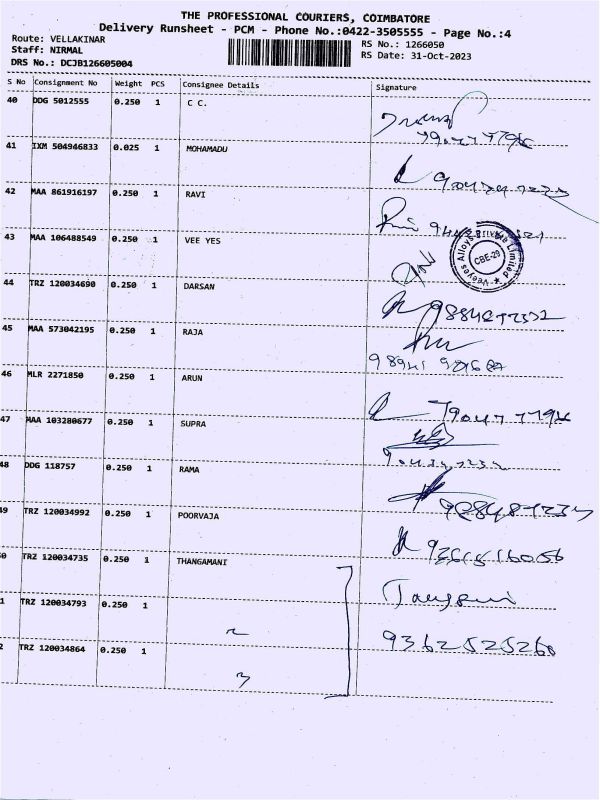 THE PROFESSIONAL COURIERS, COIMBATORE
Delivery Runsheet - PCM - Phone No.:0422-3505555 - Page No.:4
Route: VELLAKINAR
RS No.: 1266050
Staff: NIRMAL
RS Date: 31-Oct-2023
DRS No.: DCJB126605004
S No Consignment No Weight PCS Consignee Details Signature
40 DDG 5012555 0.250 1 C C.
79047 7796
41 IXM 504946833 0.025 1 MOHAMADU
42 MAA 861916197 0.250 1 RAVI
43 MAA 106488549 0.250 1 VEE YES
Veeyes Alloys Private Limited
CBE-29
44 TRZ 120034690 0.250 1 DARSAN
45 MAA 573042195 0.250 1 RAJA
46 MLR 2271850 0.250 1 ARUN
79047 7796
47 MAA 103280677 0.250 1 SUPRA
48 DDG 118757 0.250 1 RAMA
49 TRZ 120034992 0.250 1 POORVAJA
0 TRZ 120034735 0.250 1 THANGAMANI
1 TRZ 120034793 0.250 1
2
9362525260
2 TRZ 120034864 0.250 1
3